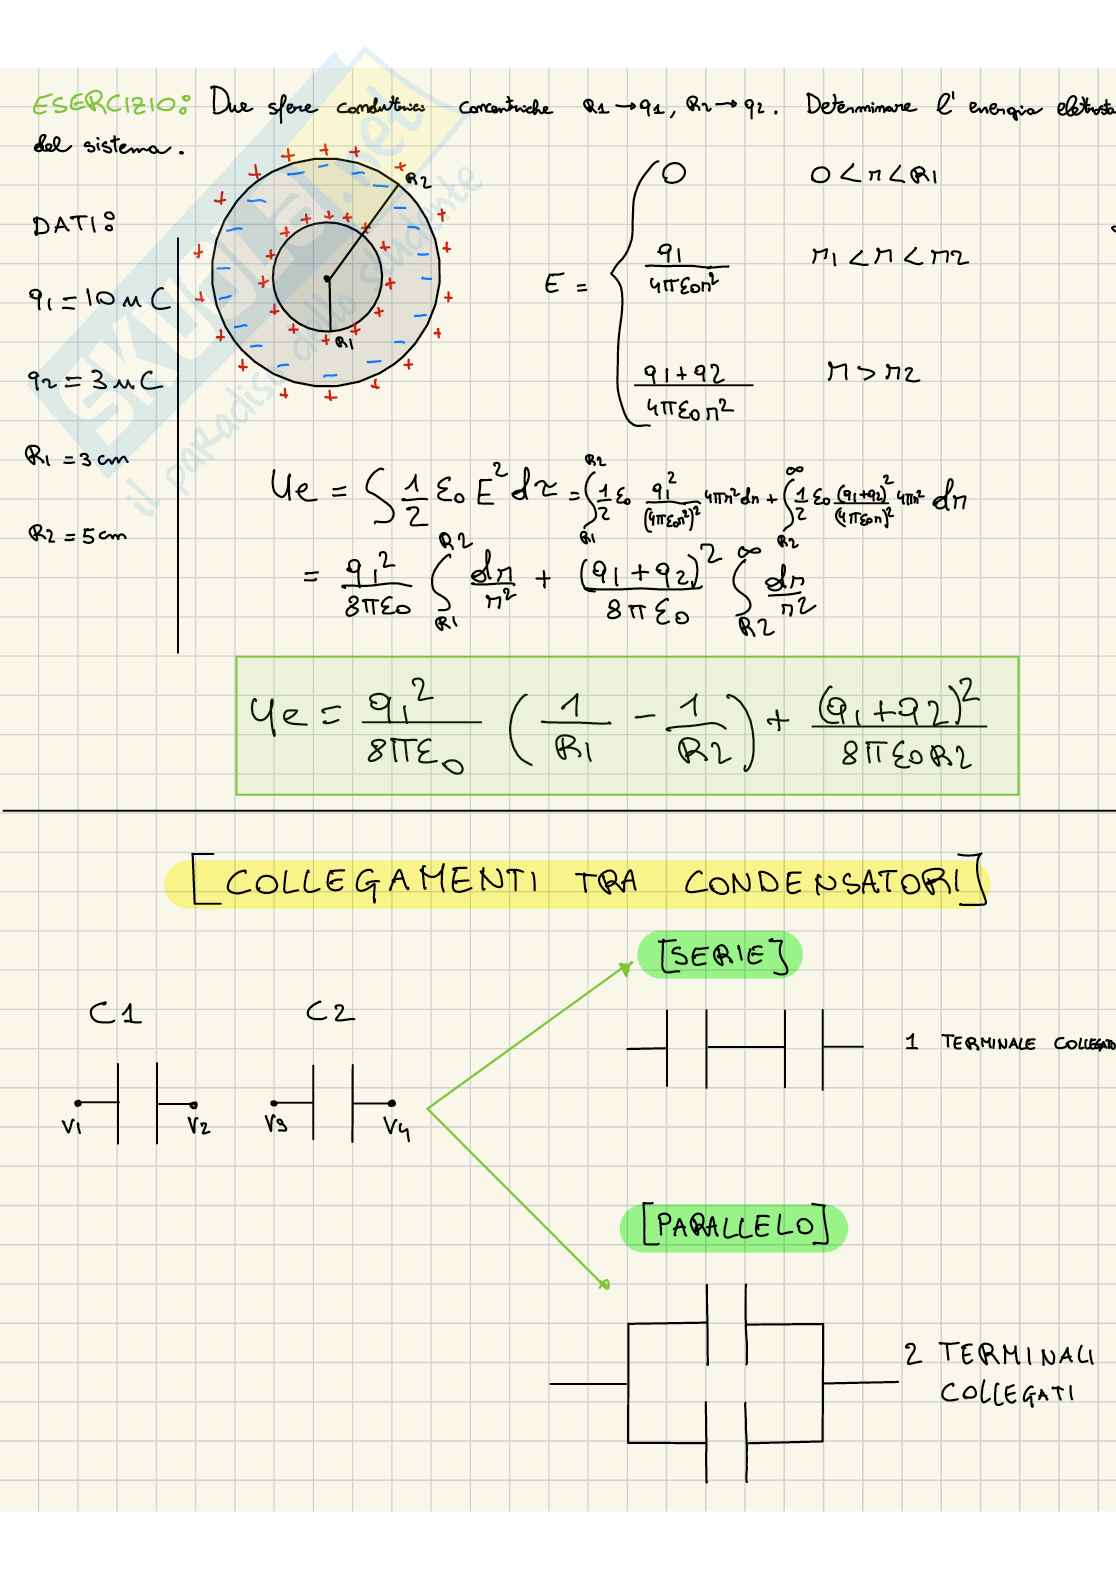 ESERCIZIO: Due sfere conduttrici concentriche R1 → q1, R2 → q2. Determinare l'energia elettrosta
del sistema.
DATI:
q1 = 10 μC
q2 = 3 μC
R1 = 3 cm
R2 = 5 cm
R2
R1
E =
0    0 < r < R1
q1 / 4πε0r²    r1 < r < r2
q1+q2 / 4πε0r²    r > r2
Ue = ∫ 1/2 ε0 E² dτ = ∫_R1^R2 1/2 ε0 q1²/(4πε0r²)² 4πr² dr + ∫_R2^∞ 1/2 ε0 (q1+q2)²/(4πε0r)² 4πr² dr
= q1²/8πε0 ∫_R1^R2 dr/r² + (q1+q2)²/8πε0 ∫_R2^∞ dr/r²
Ue = q1²/8πε0 (1/R1 - 1/R2) + (q1+q2)²/8πε0R2
[COLLEGAMENTI TRA CONDENSATORI]
[SERIE]
C1    C2
1 TERMINALE COLLEGATO
V1    V2    V3    V4
[PARALLELO]
2 TERMINALI
COLLEGATI
SKUOLA.net
il paradiso dello studente